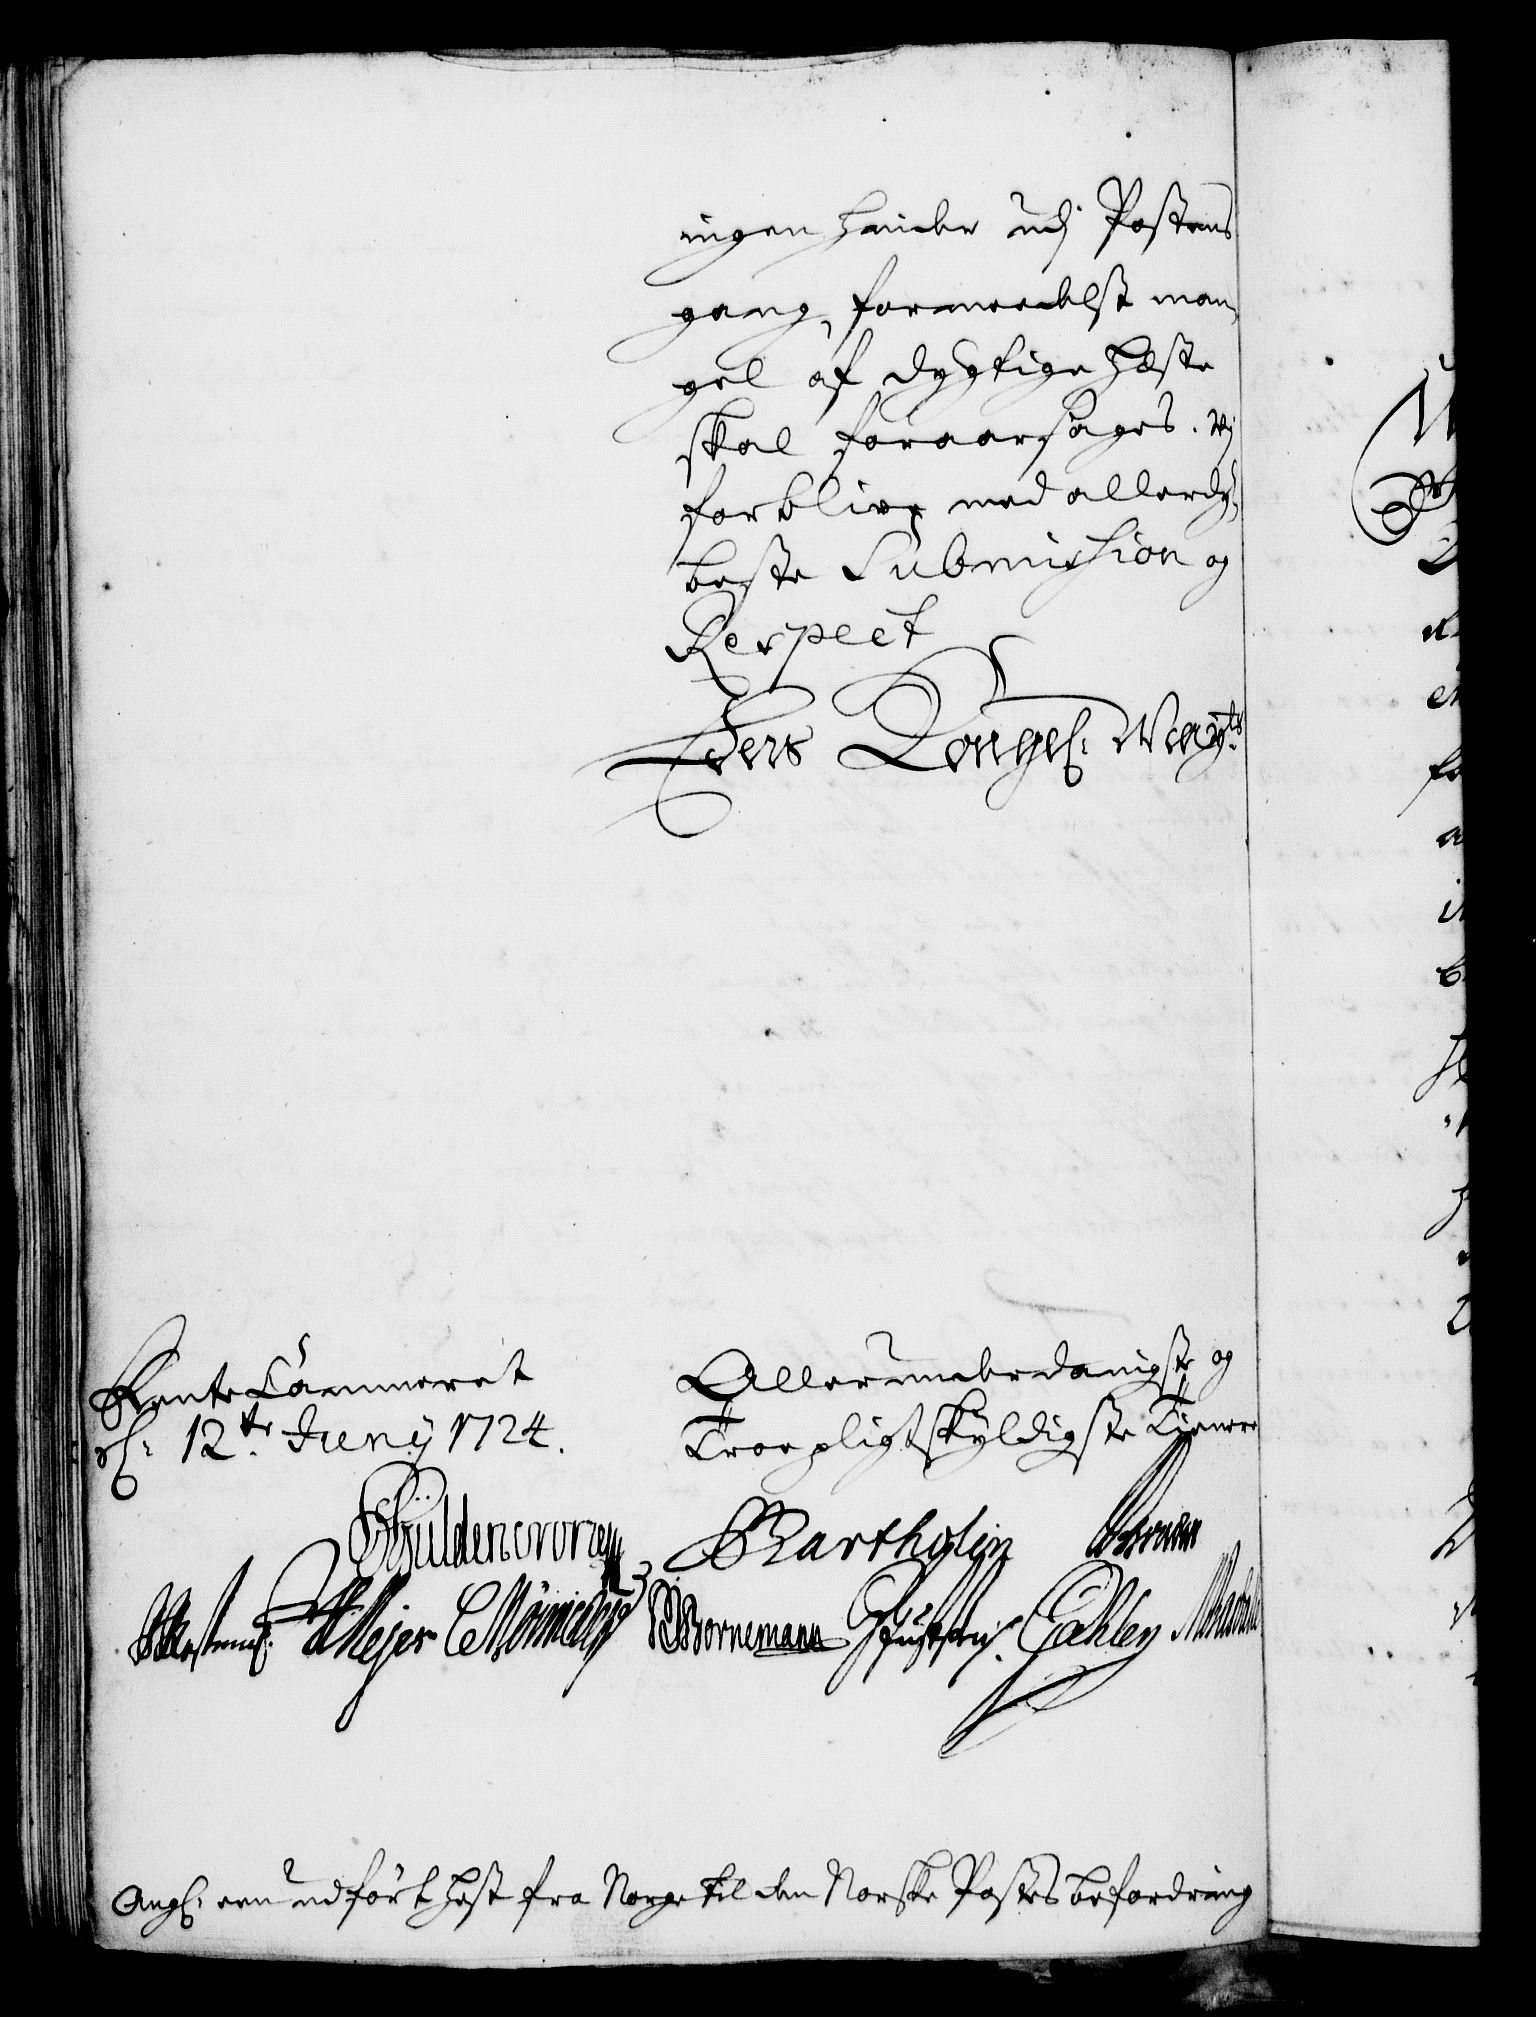 ingen hinder udj Postens
gang, formeedelst man-
gel af dygtige Hæste
skal foraarsages. Wj
forblive med allerdy-
beste Submission og
Respect
Eders Kongel: May:ts
RenteCammeret
d: 12te Junij 1724.
Allerunderdanigste og
Troepligtskyldigste Tienere
Güldencrone
Bartholin
Meyer
Bornemann
Ang: een udført Hæst fra Norge til den Norske Postes befordring